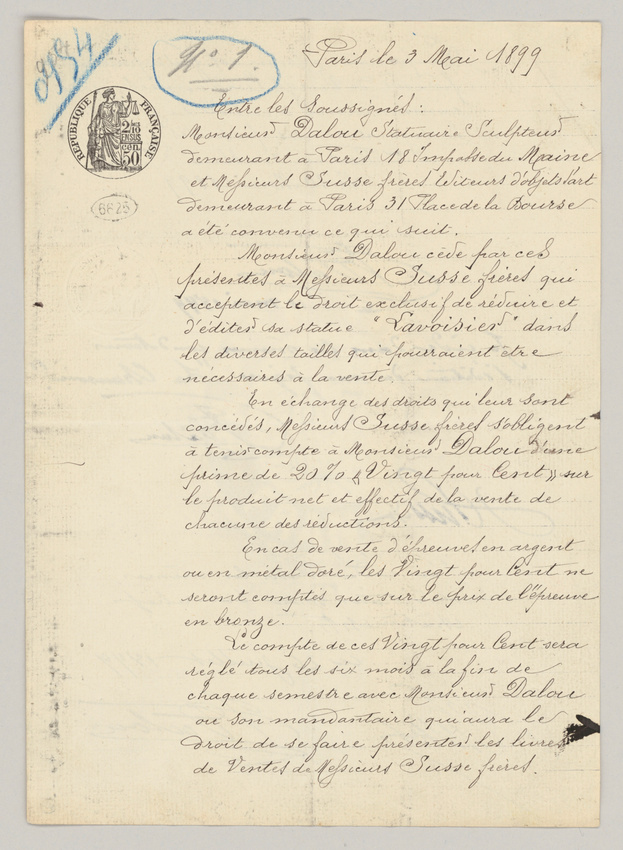 Nº 1.
Paris le 3 Mai 1899
RÉPUBLIQUE FRANÇAISE
2/10 EN SUS
50 cen
6625
Entre les Soussignés :
Monsieur Dalou Statuaire Sculpteur
demeurant à Paris 18 Impasse du Maine
et Messieurs Susse frères Editeurs d'objets d'art
demeurant à Paris 31 Place de la Bourse
a été convenu ce qui suit.
Monsieur Dalou cède par ces
présentes à Messieurs Susse frères qui
acceptent le droit exclusif de réduire et
d'éditer sa statue "Lavoisier" dans
les diverses tailles qui pourraient être
nécessaires à la vente.
En échange des droits qui leur sont
concédés, Messieurs Susse frères s'obligent
à tenir compte à Monsieur Dalou d'une
prime de 20 % « Vingt pour Cent » sur
le produit net et effectif de la vente de
chacune des réductions.
En cas de vente d'épreuves en argent
ou en métal doré, les Vingt pour Cent ne
seront comptés que sur le prix de l'épreuve
en bronze.
Le compte de ces Vingt pour Cent sera
réglé tous les six mois à la fin de
chaque semestre avec Monsieur Dalou
ou son mandantaire qui aura le
droit de se faire présenter les livres
de Ventes de Messieurs Susse frères.